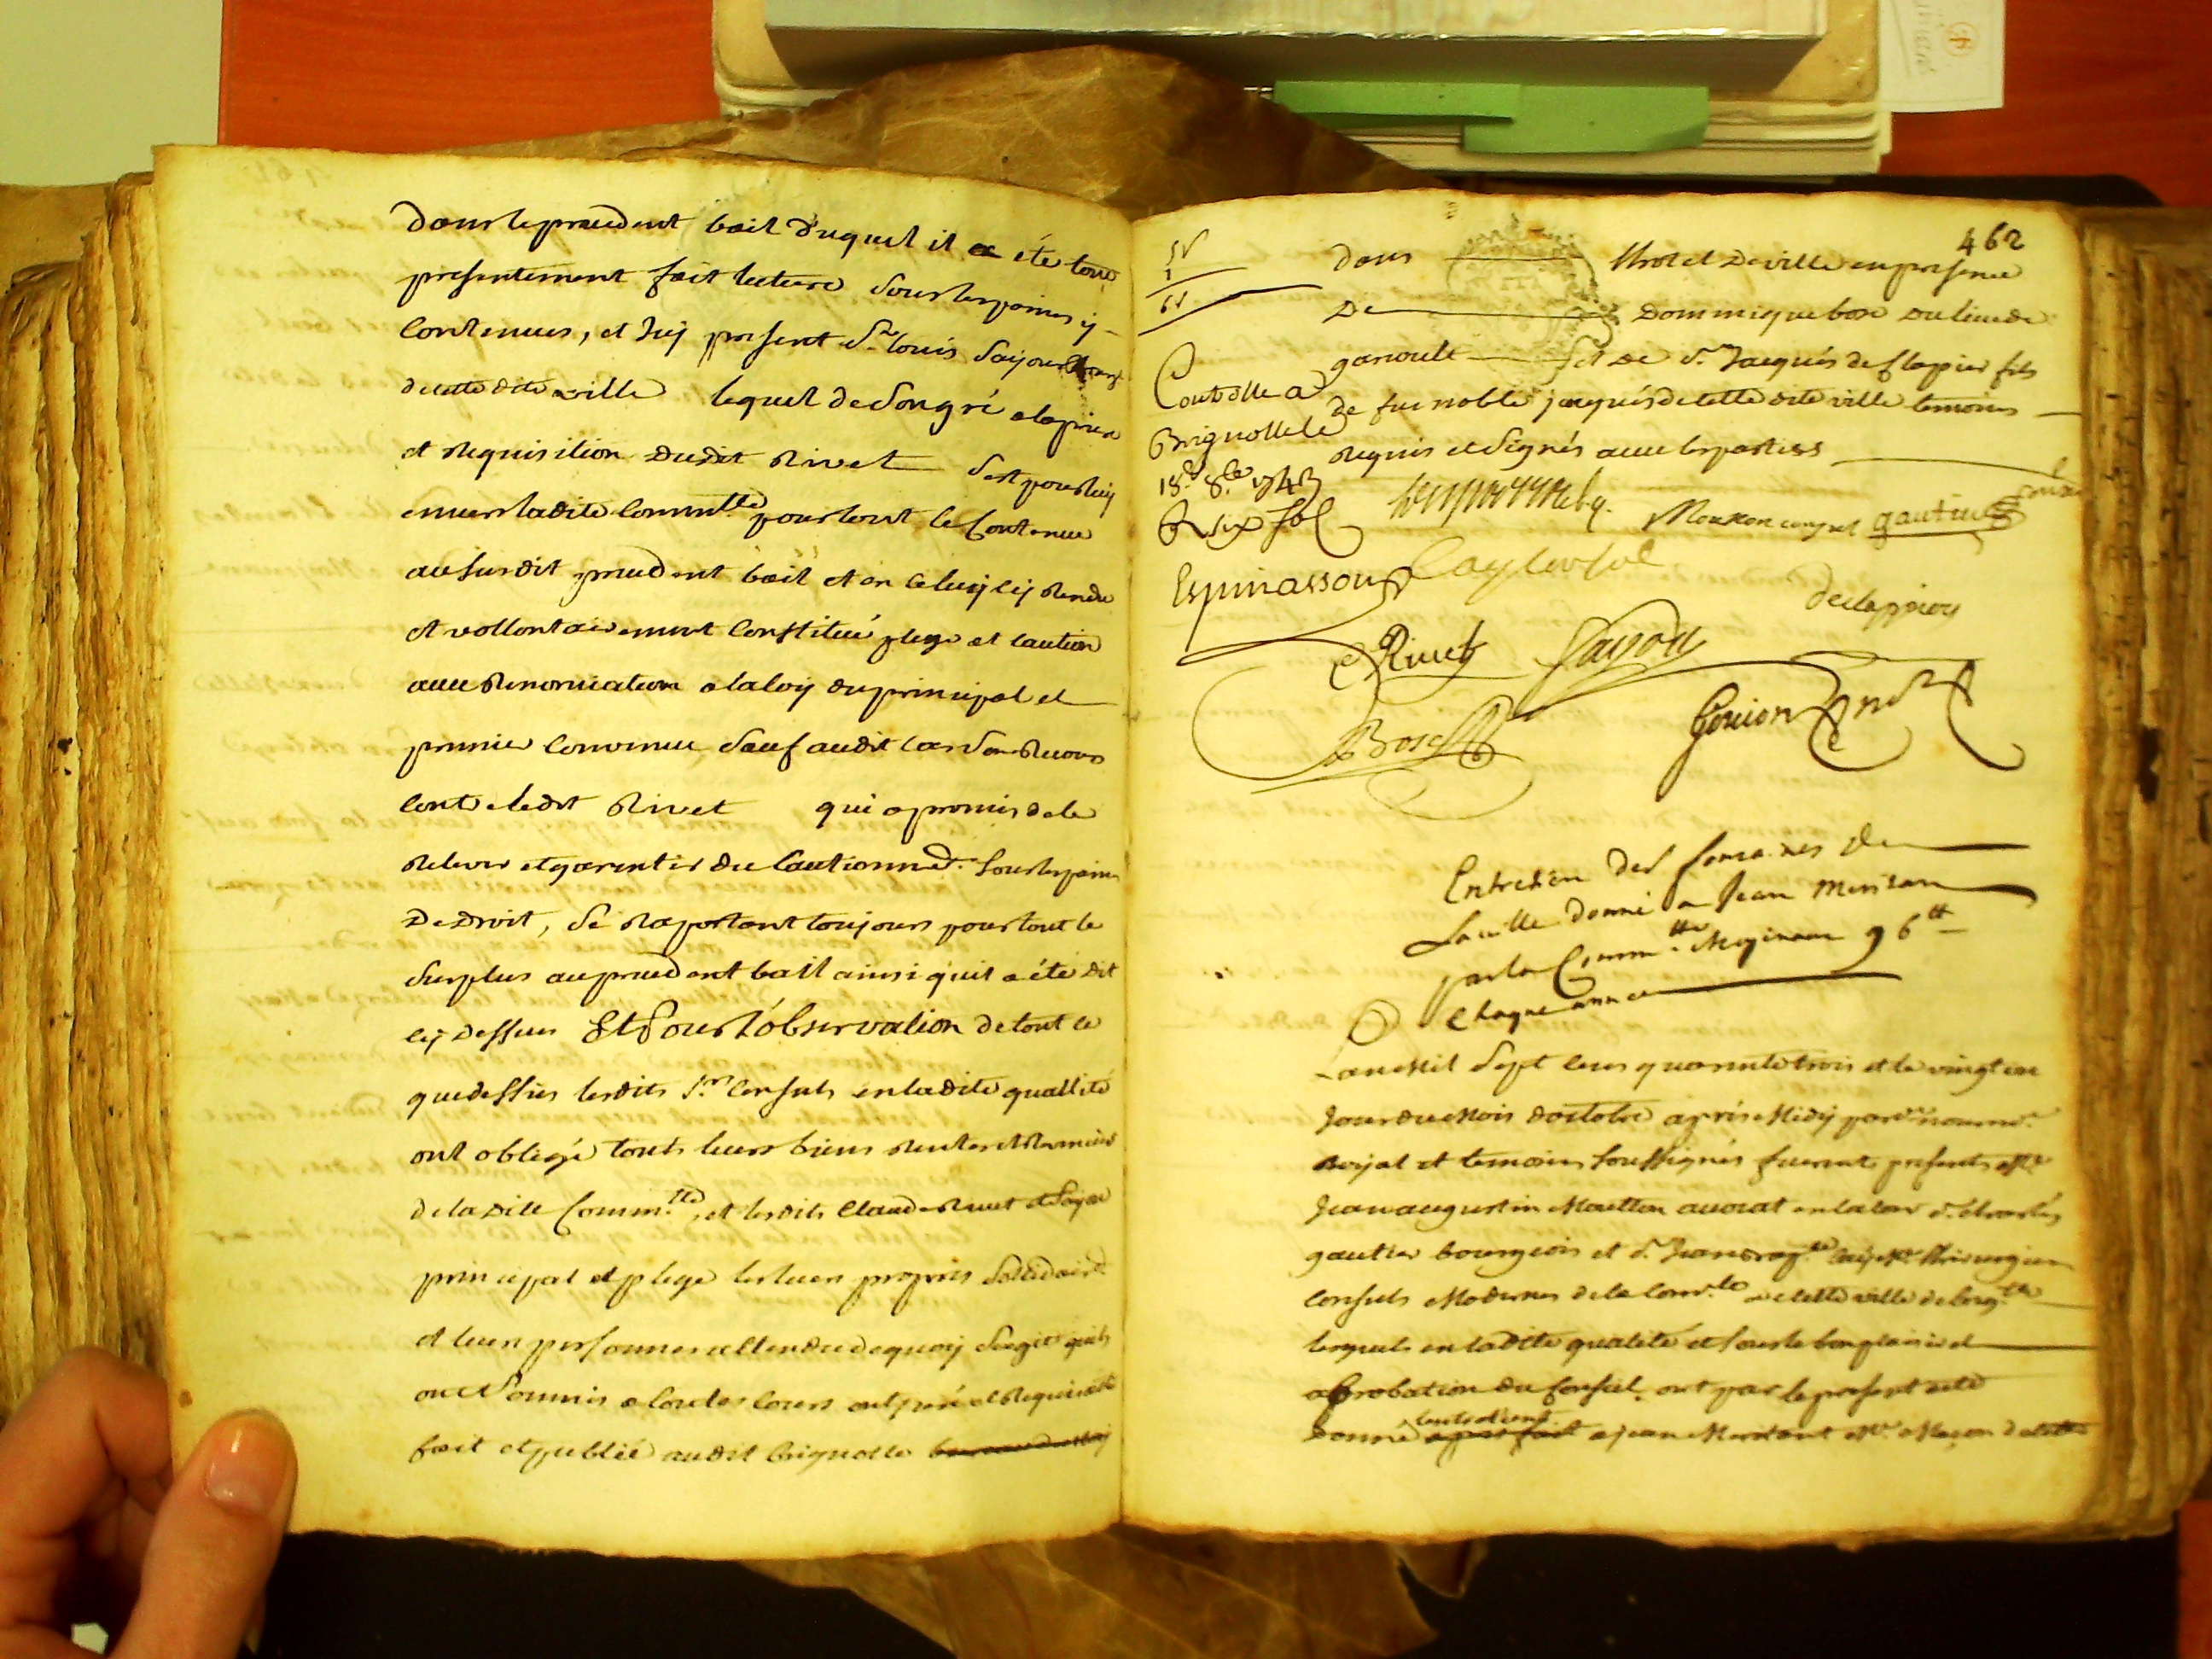 dans le precedent bail duquel il a eté tout
presentement fait lecture sous les peines y
contenues, et icy present Sr louis Sayou
de cette dite ville lequel de son gré a la priere
et requisition dudit Rivet s'est pour luy
envers ladite Commtté pour tout le contenu
au susdit precedent bail et en celuy cy rendu
et vollontairement constitué plege et caution
avec renonciation a la loy du principal et
premier convenu sauf audit cas son recours
contre ledit Rivet qui a promis de le
relever et garentir du cautionnet. sous les peines
De Droit, se raportant toujours pour tout le
surplus au precedent bail ainsi quil a été dit
cy dessus Et Pour l'observation de tout ce
que dessus lesdits Srs Consuls en ladite quallité
ont obligé touts leurs biens rentes et revenus
de la dite Comm.tté, et lesdits Claude Rivet et Sayou
principal et plege les leurs propres solidairt.
et leurs personnes attendu de quoy s'agit quils
ont soumis a toutes cours ont juré et requis acte
fait et publié audit Brignolle
462
dans l'hotel de ville en presence
De Dominique bosc du lieu de
garoule et de Sr. Jacques de Clapier fils
de feu noble jacques de cette dite ville temoins
requis et signés avec les parties
Controlle a
Brignolle le
18e 8bre 1743
R six sol
Moutton consul gautier consul
Espinasson Cayler sol
declapiers
Rivet Sayou
Bosc Goujon Ndre
Entretien des fontaines de
La ville donné a Jean Meritan
par la Comm.tté Moyenant 96 tt
Chaque année
L'an Mil Sept cens quarante trois et le vingt un
Jour du Mois d'octobre aprés Midy pard. nous nore.
Royal et temoins soussignés furent presents
Jean augustin Moutton avocat en la cour Sr. Charles
gautier bourgeois et Sr. Jean Chirurgien
consuls Modernes de la Com.té de cette ville de brig.lle
lesquels en ladite qualité et sous le bon plaisir et
aprobation du Conseil, ont par le present acte
l'entretient
donné a prix fait a jean Meritant Me. Maçon de cette